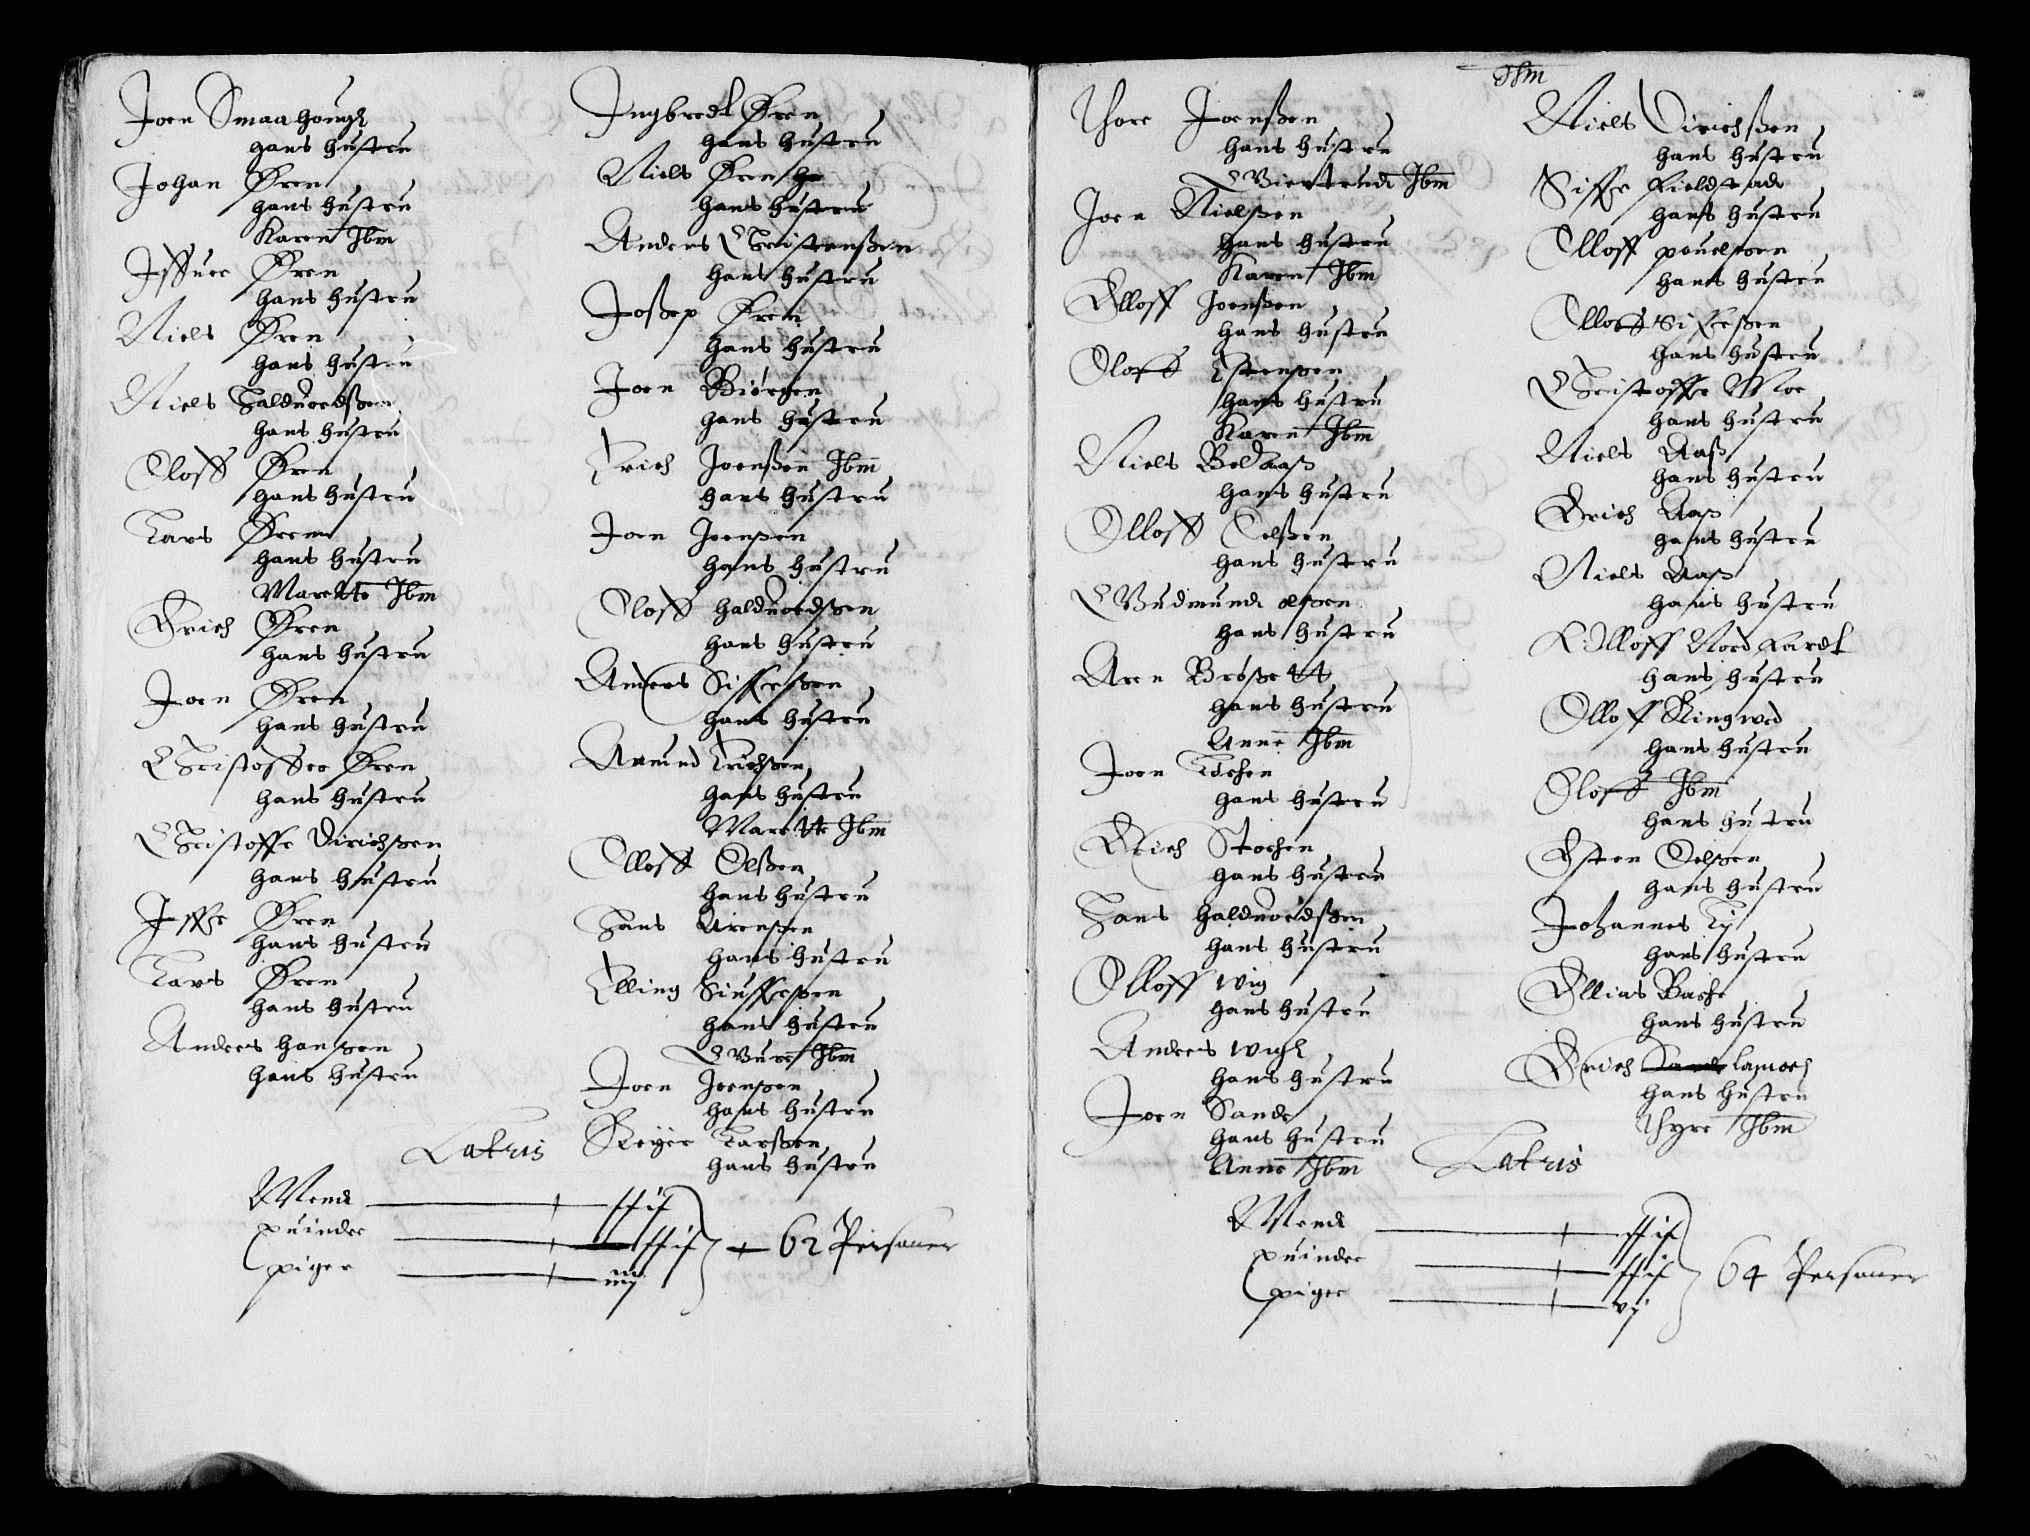 Joen Smaahough
hans hustru
Johan Øren
hans hustru
Karen Ibm
Iffuer Øren
hans hustru
Niels Øren
hans hustru
Niels Halduordßen
hans hustru
Oloff Øren
hans hustru
Lars Øren
hans hustru
Marette Ibm
Erich Øren
hans hustru
Joen Øren
hans hustru
Christoffer Øren
hans hustru
Christoffer Dirichßen
hans hustru
Iffer Øren
hans hustru
Lars Øren
hans hustru
Anders hanßen
hans hustru
Ingbredt Øren
hans hustru
Niels Øren
hans hustru
Anders Christenßen
hans hustru
Joßep Øren
hans hustru
Joen Biørgen
hans hustru
Erich Joenßen Ibm
hans hustru
Joen Joenßen
hans hustru
Oloff halduordßen
hans hustru
Anders Siffueßen
hans hustru
Amund Erichßen
hans hustru
Marette Ibm
Olloff Olßen
hans hustru
Hans Arenßen
hans hustru
Elling Siuffueßen
hans hustru
Guro Ibm
Joen Joenßen
hans hustru
Reyer Larßen
hans hustru
Latris
Mend ffij
quinder ffij
piger iiij
62 Personer
Ibm
Thore Joenßen
hans hustru
Giertrude Ibm
Joen Nielßen
hans hustru
Karen Ibm
Elloff Joenßen
hans hustru
Oloff Estenßen
hans hustru
Karen Ibm
Niels Boldaaß
hans hustru
Olloff Oelßen
hans hustru
Gudmund olßen
hans hustru
Aren Brößett
hans hustru
Anne Ibm
Joen Lochen
hans hustru
Erich Stochen
hans hustru
Hans halduordßen
hans hustru
Olloff wig
hans hustru
Anders wigh
hans hustru
Joen Sande
hans hustru
Anne Ibm
Niels Dirichßen
hans hustru
Siffer Fieldstade
hans hustru
Olloff pouelßen
hans hustru
Olloff Siffueßen
hans hustru
Christoffer Moe
hans hustru
Niels Aaß
hans hustru
Erich Aaß
hans hustru
Niels Aaß
hans hustru
Elloff Nordgardt
hans hustru
Olloff Ringwed
hans hustru
Oloff Ibm
hans hustru
Esten Oelßen
hans hustru
Johannes Ly
hans hustru
Ellias Bache
hans hustru
Erich
hans hustru
Thyre Ibm
Latris
Mend ffij
quinder ffij
piger vj
64 Personer